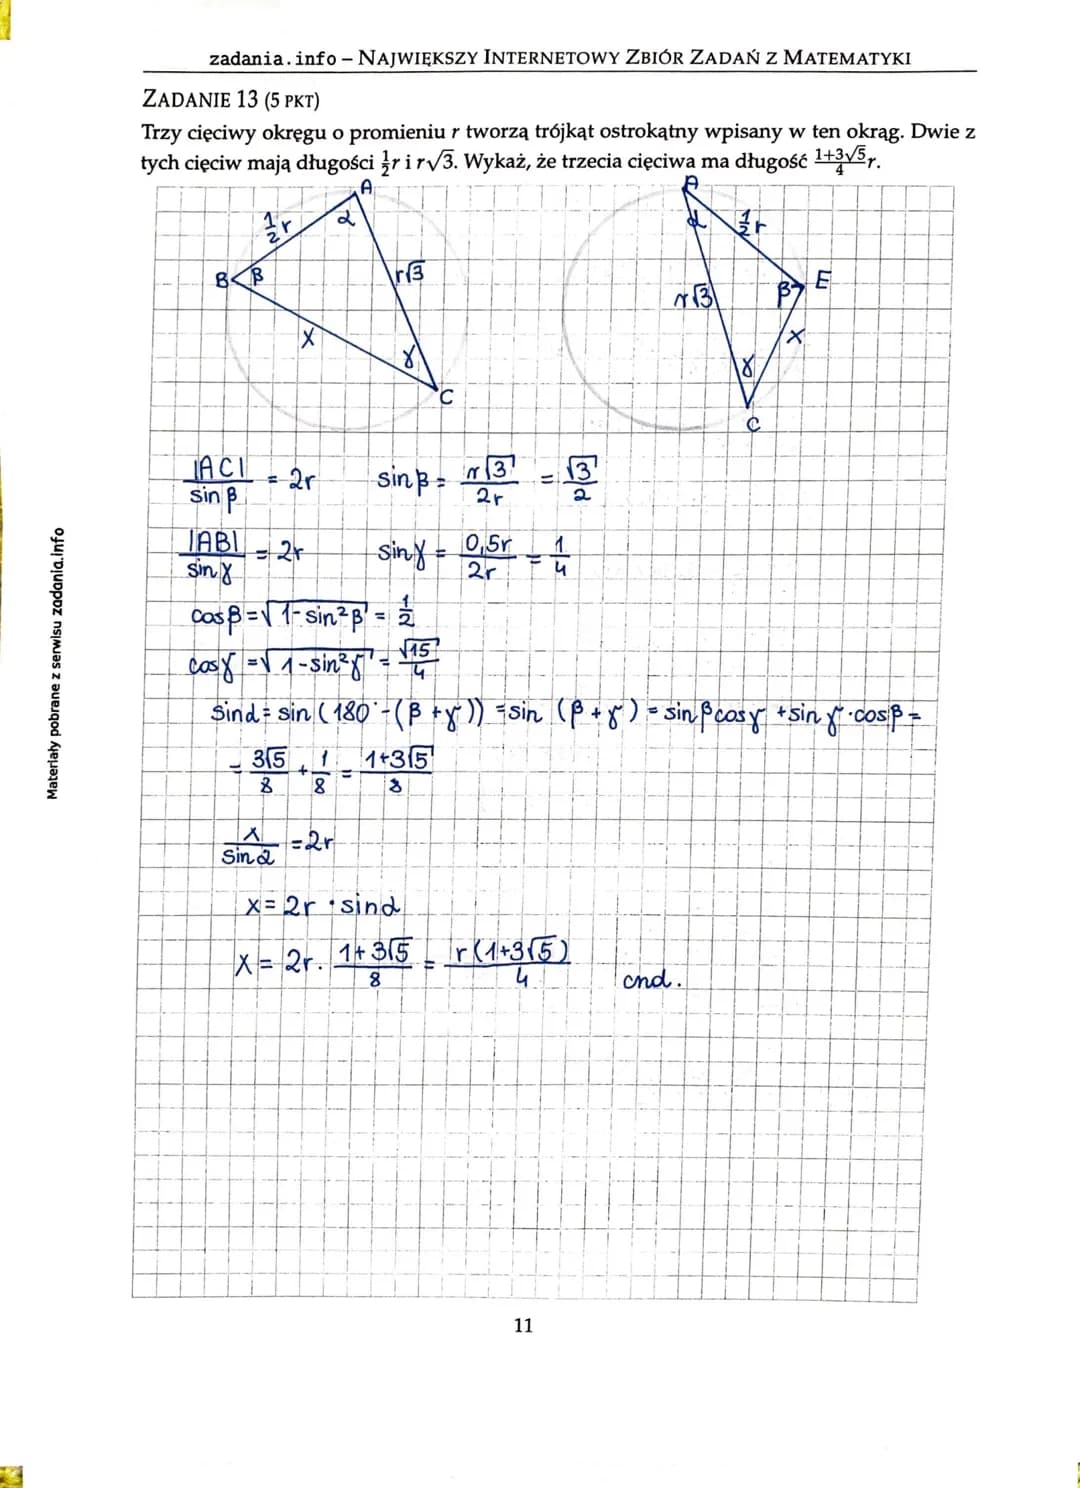 zadania.info – NAJWIĘKSZY INTERNETOWY ZBIÓR ZADAŃ Z MATEMATYKI
ZADANIE 13 (5 PKT)
Trzy cięciwy okręgu o promieniu r tworzą trójkąt ostrokątny wpisany w ten okrąg. Dwie z
tych cięciw mają długości 1/2 r i r√3. Wykaż, że trzecia cięciwa ma długość (1+3√5)/4 r.
A
1/2 r
α
B
β
r√3
x
γ
C
A
α
1/2 r
r√3
β
E
x
γ
C
|AC|/sin β = 2r    sin β = r√3/2r = √3/2
|AB|/sin γ = 2r    sin γ = 0,5r/2r = 1/4
cos β = √(1-sin²β) = 1/2
cos γ = √(1-sin²γ) = √15/4
sin α = sin (180° - (β + γ)) = sin (β + γ) = sin β cos γ + sin γ · cos β =
= 3√5/8 + 1/8 = (1+3√5)/8
x/sin α = 2r
x = 2r · sin α
x = 2r · (1+3√5)/8 = r(1+3√5)/4    cnd.
11
Materiały pobrane z serwisu zadania.info